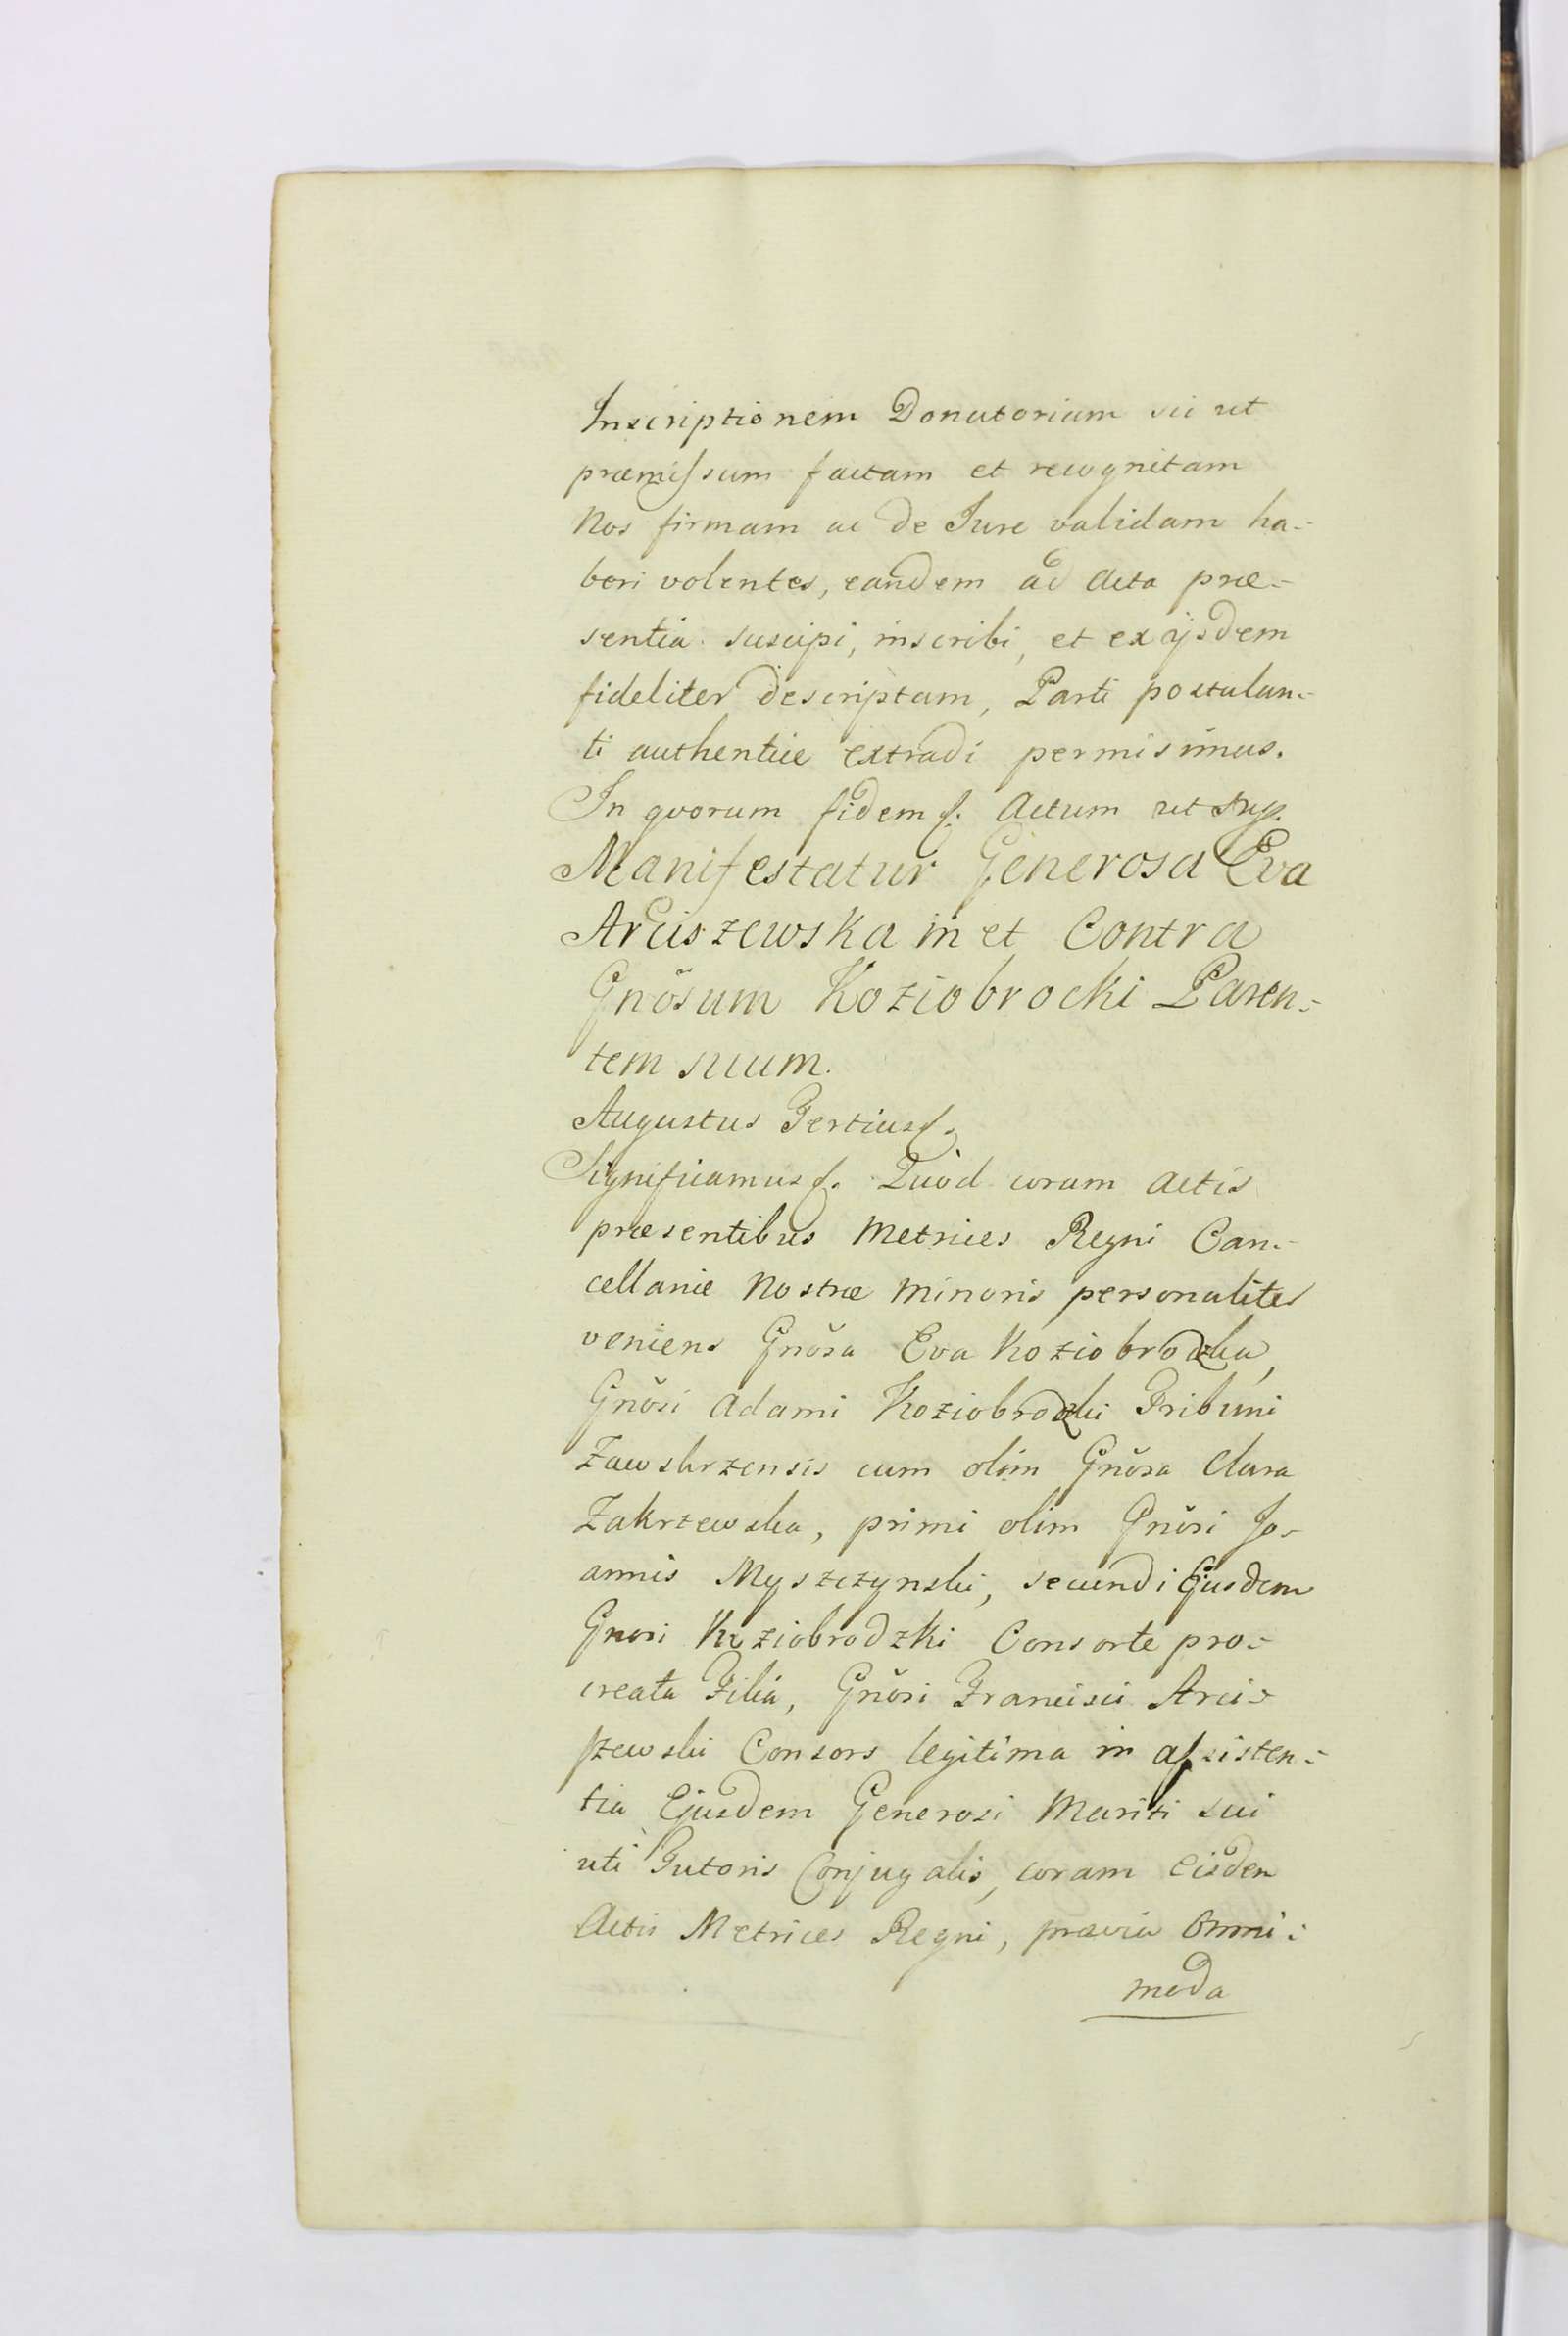 Inscriptionem Donatoriam sic ut
præmissum factam et recognitam
Nos firmam ac de Jure validam ha-
beri volentes, eandem ad Acta præ-
sentia suscipi, inscribi, et ex ijsdem
fideliter descriptam, Parti postulan-
ti authentice extradi permisimus.
In quorum fidem &. Actum ut sup.
Manifestatur Generosa Eva
Arciszewska in et Contra
Gnôsum Koziobrocki Paren-
tem suum.
Augustus Tertius &.
Significamus &. Quòd coram Actis
præsentibus Metrices Regni Can-
cellariæ Nostræ Minoris personaliter
veniens Gnôsa Eva Koziobrodzka,
Gnôsi Adami Koziobrodzki Tribuni
Zawskrzensis cum olim Gnôsa Clara
Zakrzewska, primi olim Gnôsi Jo-
annis Myszczynski, secundi Ejusdem
Gnosi Koziobrodzki Consorte pro-
creata Filia, Gnôsi Francisci Arci-
szewski Consors legitima in assisten-
tia Ejusdem Generosi Mariti sui
uti Tutoris Conjugalis, coram Eisdem
Actis Metrices Regni, prævia Omni-
moda